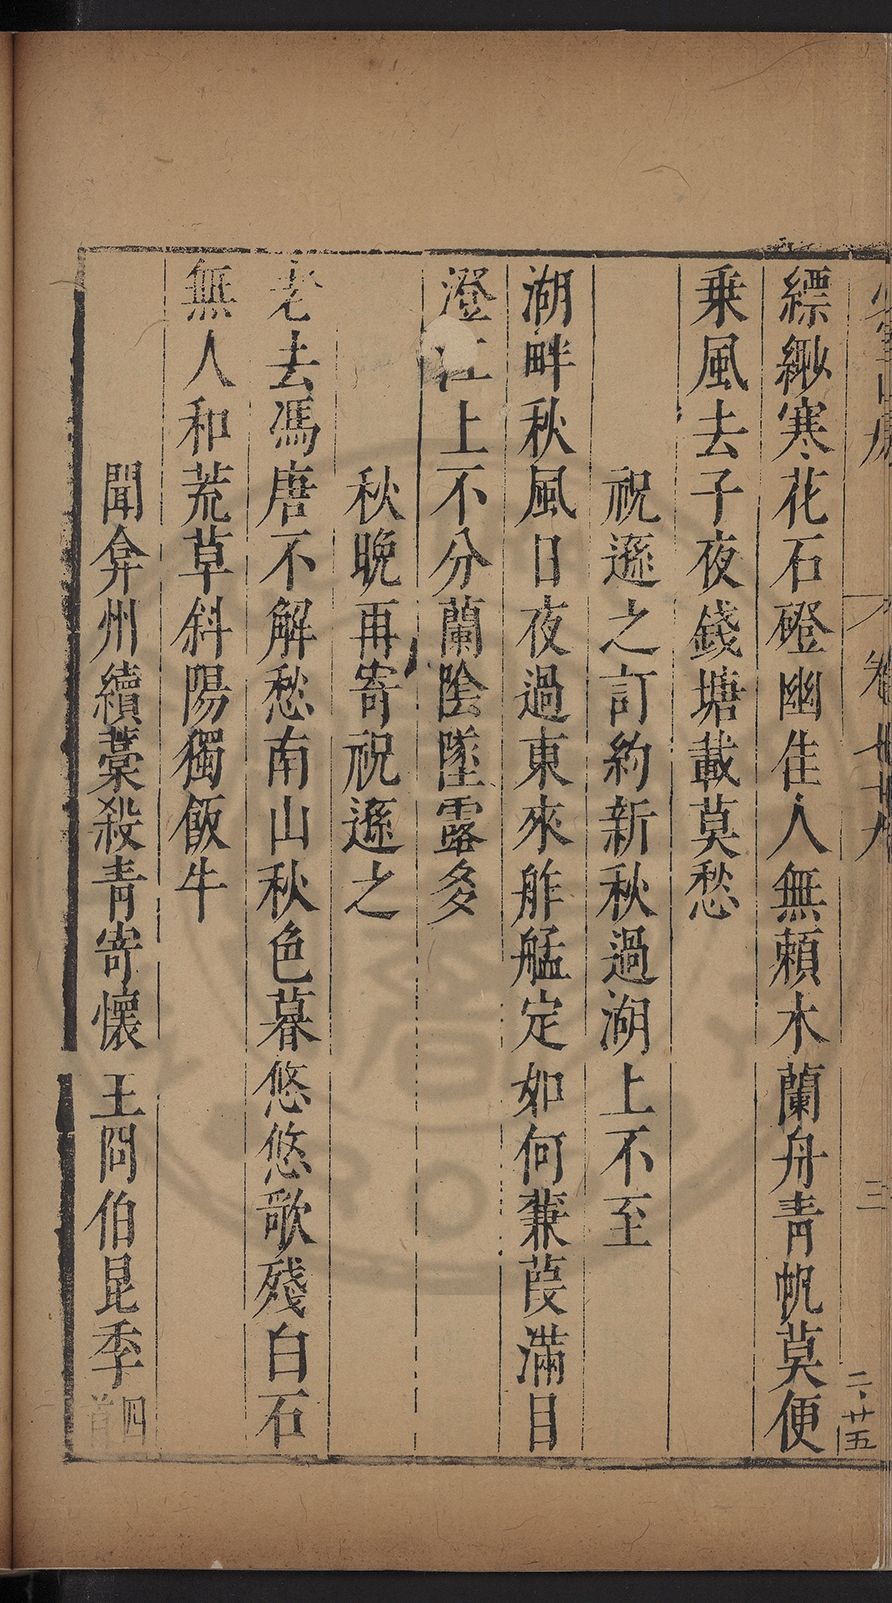 卷七十九
三
二·廿五
縹緲寒花石磴幽佳人無賴木蘭舟青帆莫便
乗風去子夜錢塘載莫愁
祝遜之訂約新秋過湖上不至
湖畔秋風日夜過東來舴艋定如何蒹葭滿目
澄江上不分蘭陰墜露多
秋晚再寄祝遜之
老去馮唐不解愁南山秋色暮悠悠歌殘白石
無人和荒草斜陽獨飯牛
聞弇州續藁殺青寄懷王冏伯昆季四首